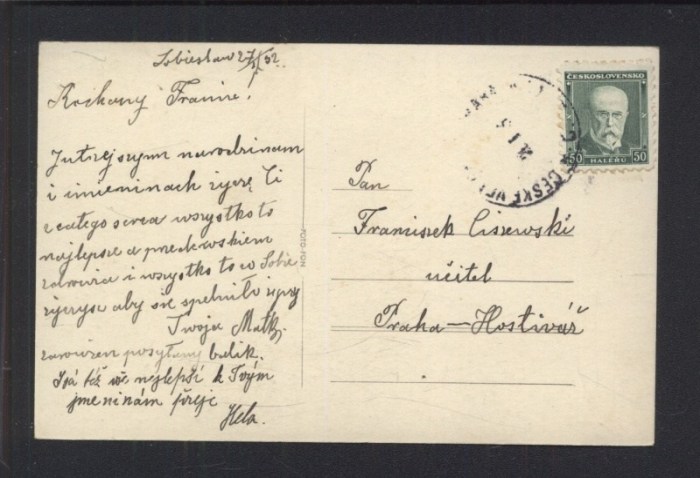 Sobiesław 27/ 32
Kochany Franiu!
Jutrzejszym narodzinam
i imieninach życzę Ci
z całego serca wszystko to
najlepsze a przedewskiem
zdrowia i wszystko to co Sobie
życzysz aby się spełniło życzy
Twoja Matk.
zarówżen posyłamy balik.
Já též vše nejlepší k Tvým
jmeninám přeje
Hela.
FOTO-FON
ČESKOSLOVENSKO
50 HALÉŘŮ 50
ČESKÉ
Pan
Franciszek Ciszewski
učitel
Praha—Hostivář